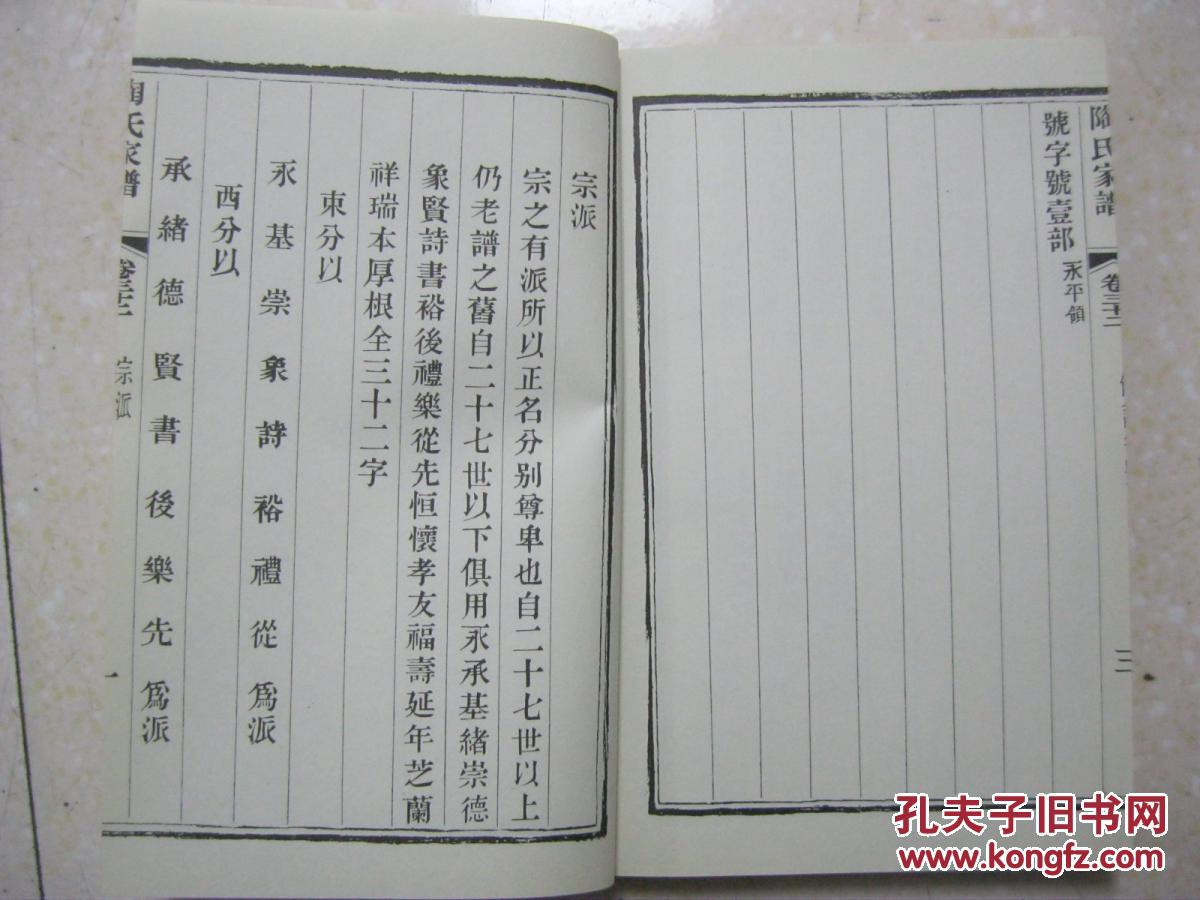 陶氏家譜
卷三十二
三
號字號壹部 永平領
宗派
宗之有派所以正名分别尊卑也自二十七世以上
仍老譜之舊自二十七世以下俱用永承基緒崇德
象賢詩書裕後禮樂從先恒懷孝友福壽延年芝蘭
祥瑞本厚根全三十二字
東分以
永基崇象詩裕禮從爲派
西分以
承緒德賢書後樂先爲派
陶氏家譜
卷三十二
宗派
一
孔夫子旧书网
www.kongfz.com